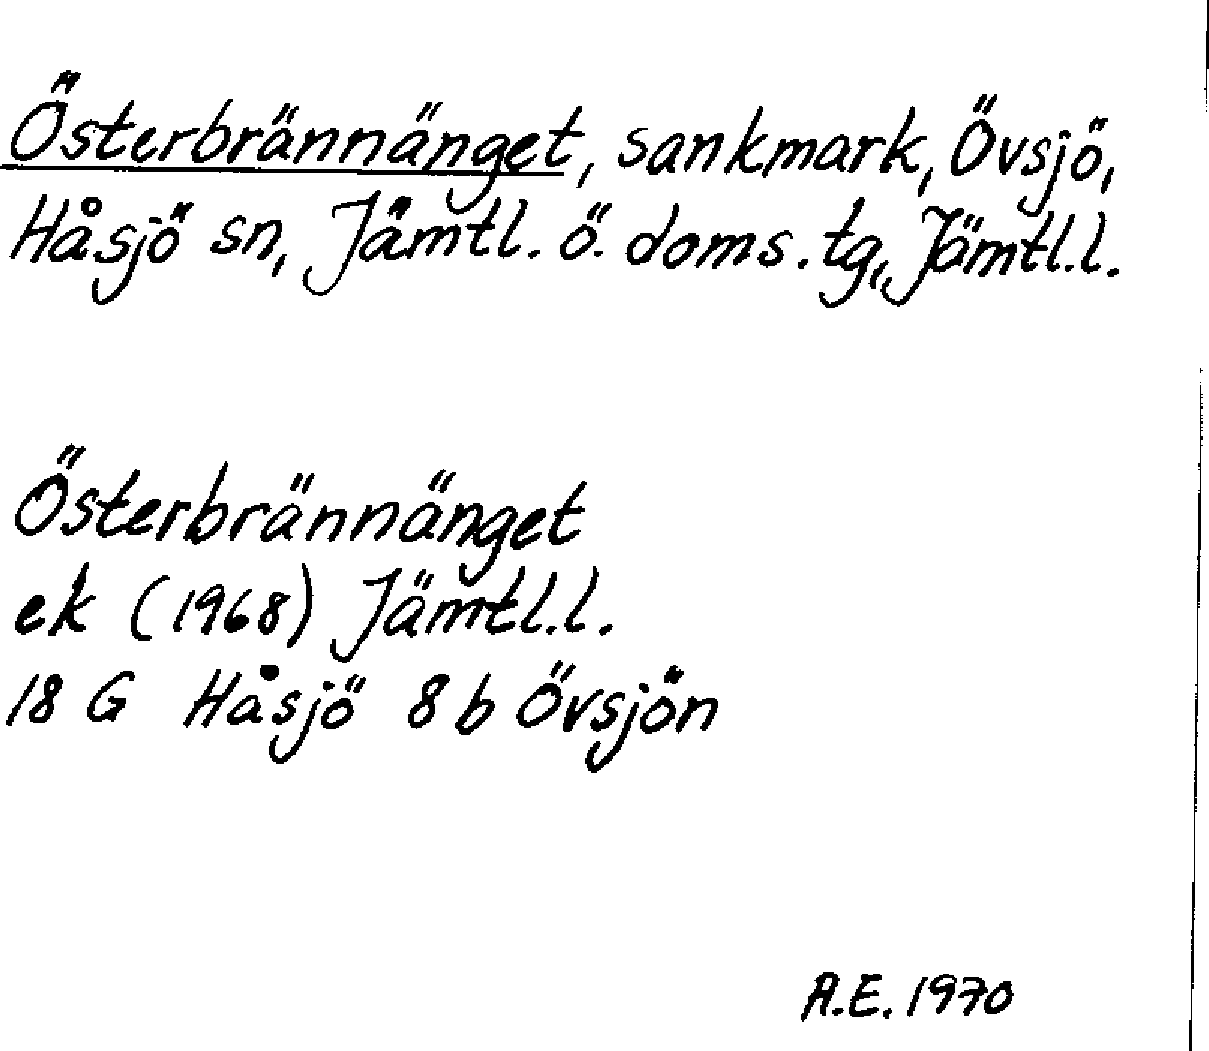 Österbrännänget, sankmark, Övsjö,
Håsjö sn, Jämtl. ö. doms. tg, Jämtl.l.
Österbrännänget
ek (1968) Jämtl.l.
18 G Håsjö 8 b Övsjön
A.E. 1970